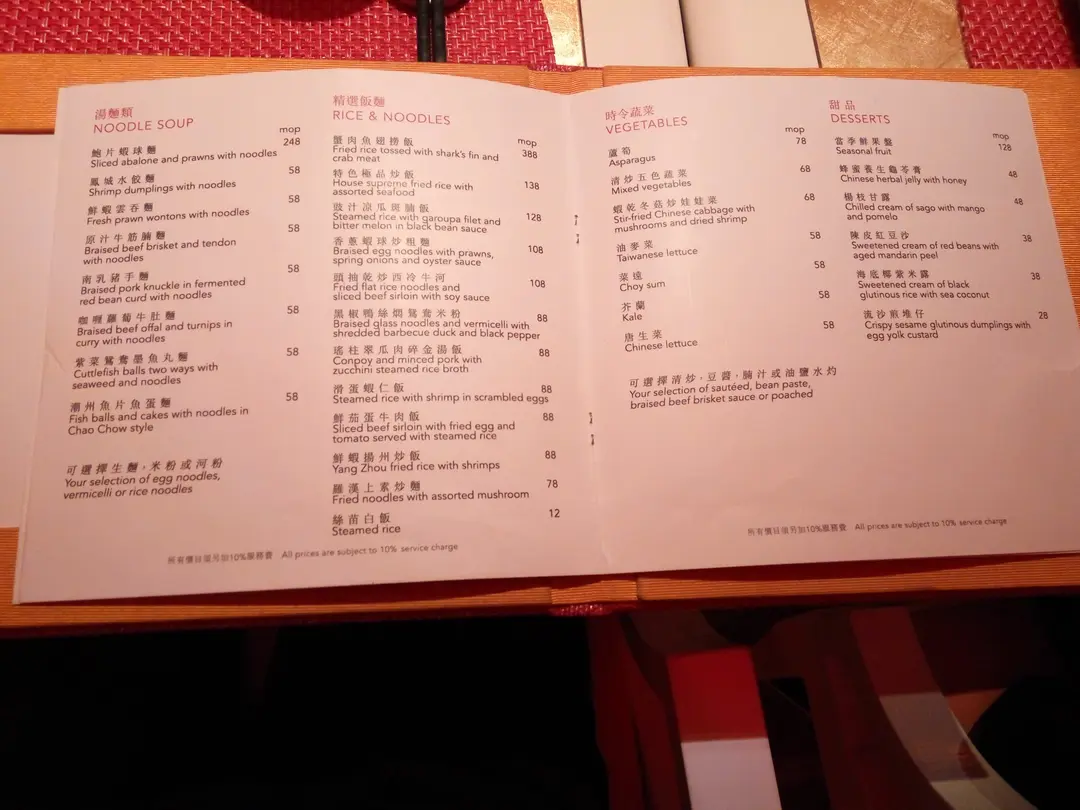 湯麵類
NOODLE SOUP
mop
鮑片蝦球麵 248
Sliced abalone and prawns with noodles
鳳城水餃麵 58
Shrimp dumplings with noodles
鮮蝦雲吞麵 58
Fresh prawn wontons with noodles
原汁牛筋腩麵 58
Braised beef brisket and tendon
with noodles
南乳豬手麵 58
Braised pork knuckle in fermented
red bean curd with noodles
咖喱蘿蔔牛肚麵 58
Braised beef offal and turnips in
curry with noodles
紫菜鴛鴦墨魚丸麵 58
Cuttlefish balls two ways with
seaweed and noodles
潮州魚片魚蛋麵 58
Fish balls and cakes with noodles in
Chao Chow style
可選擇生麵，米粉或河粉
Your selection of egg noodles,
vermicelli or rice noodles
精選飯麵
RICE & NOODLES
mop
蟹肉魚翅撈飯 388
Fried rice tossed with shark's fin and
crab meat
特色極品炒飯 138
House supreme fried rice with
assorted seafood
豉汁涼瓜斑腩飯 128
Steamed rice with garoupa filet and
bitter melon in black bean sauce
香蔥蝦球炒粗麵 108
Braised egg noodles with prawns,
spring onions and oyster sauce
頭抽乾炒西冷牛河 108
Fried flat rice noodles and
sliced beef sirloin with soy sauce
黑椒鴨絲燜鴛鴦米粉 88
Braised glass noodles and vermicelli with
shredded barbecue duck and black pepper
瑤柱翠瓜肉碎金湯飯 88
Conpoy and minced pork with
zucchini steamed rice broth
滑蛋蝦仁飯 88
Steamed rice with shrimp in scrambled eggs
鮮茄蛋牛肉飯 88
Sliced beef sirloin with fried egg and
tomato served with steamed rice
鮮蝦揚州炒飯 88
Yang Zhou fried rice with shrimps
羅漢上素炒麵 78
Fried noodles with assorted mushroom
絲苗白飯 12
Steamed rice
所有價目須另加10%服務費 All prices are subject to 10% service charge
時令蔬菜
VEGETABLES
mop
蘆筍 78
Asparagus
清炒五色蔬菜 68
Mixed vegetables
蝦乾冬菇炒娃娃菜 68
Stir-fried Chinese cabbage with
mushrooms and dried shrimp
油麥菜 58
Taiwanese lettuce
菜遠 58
Choy sum
芥蘭 58
Kale
唐生菜 58
Chinese lettuce
可選擇清炒，豆醬，腩汁或油鹽水灼
Your selection of sautéed, bean paste,
braised beef brisket sauce or poached
甜品
DESSERTS
mop
當季鮮果盤 128
Seasonal fruit
蜂蜜養生龜苓膏 48
Chinese herbal jelly with honey
楊枝甘露 48
Chilled cream of sago with mango
and pomelo
陳皮紅豆沙 38
Sweetened cream of red beans with
aged mandarin peel
海底椰紫米露 38
Sweetened cream of black
glutinous rice with sea coconut
流沙煎堆仔 28
Crispy sesame glutinous dumplings with
egg yolk custard
所有價目須另加10%服務費 All prices are subject to 10% service charge